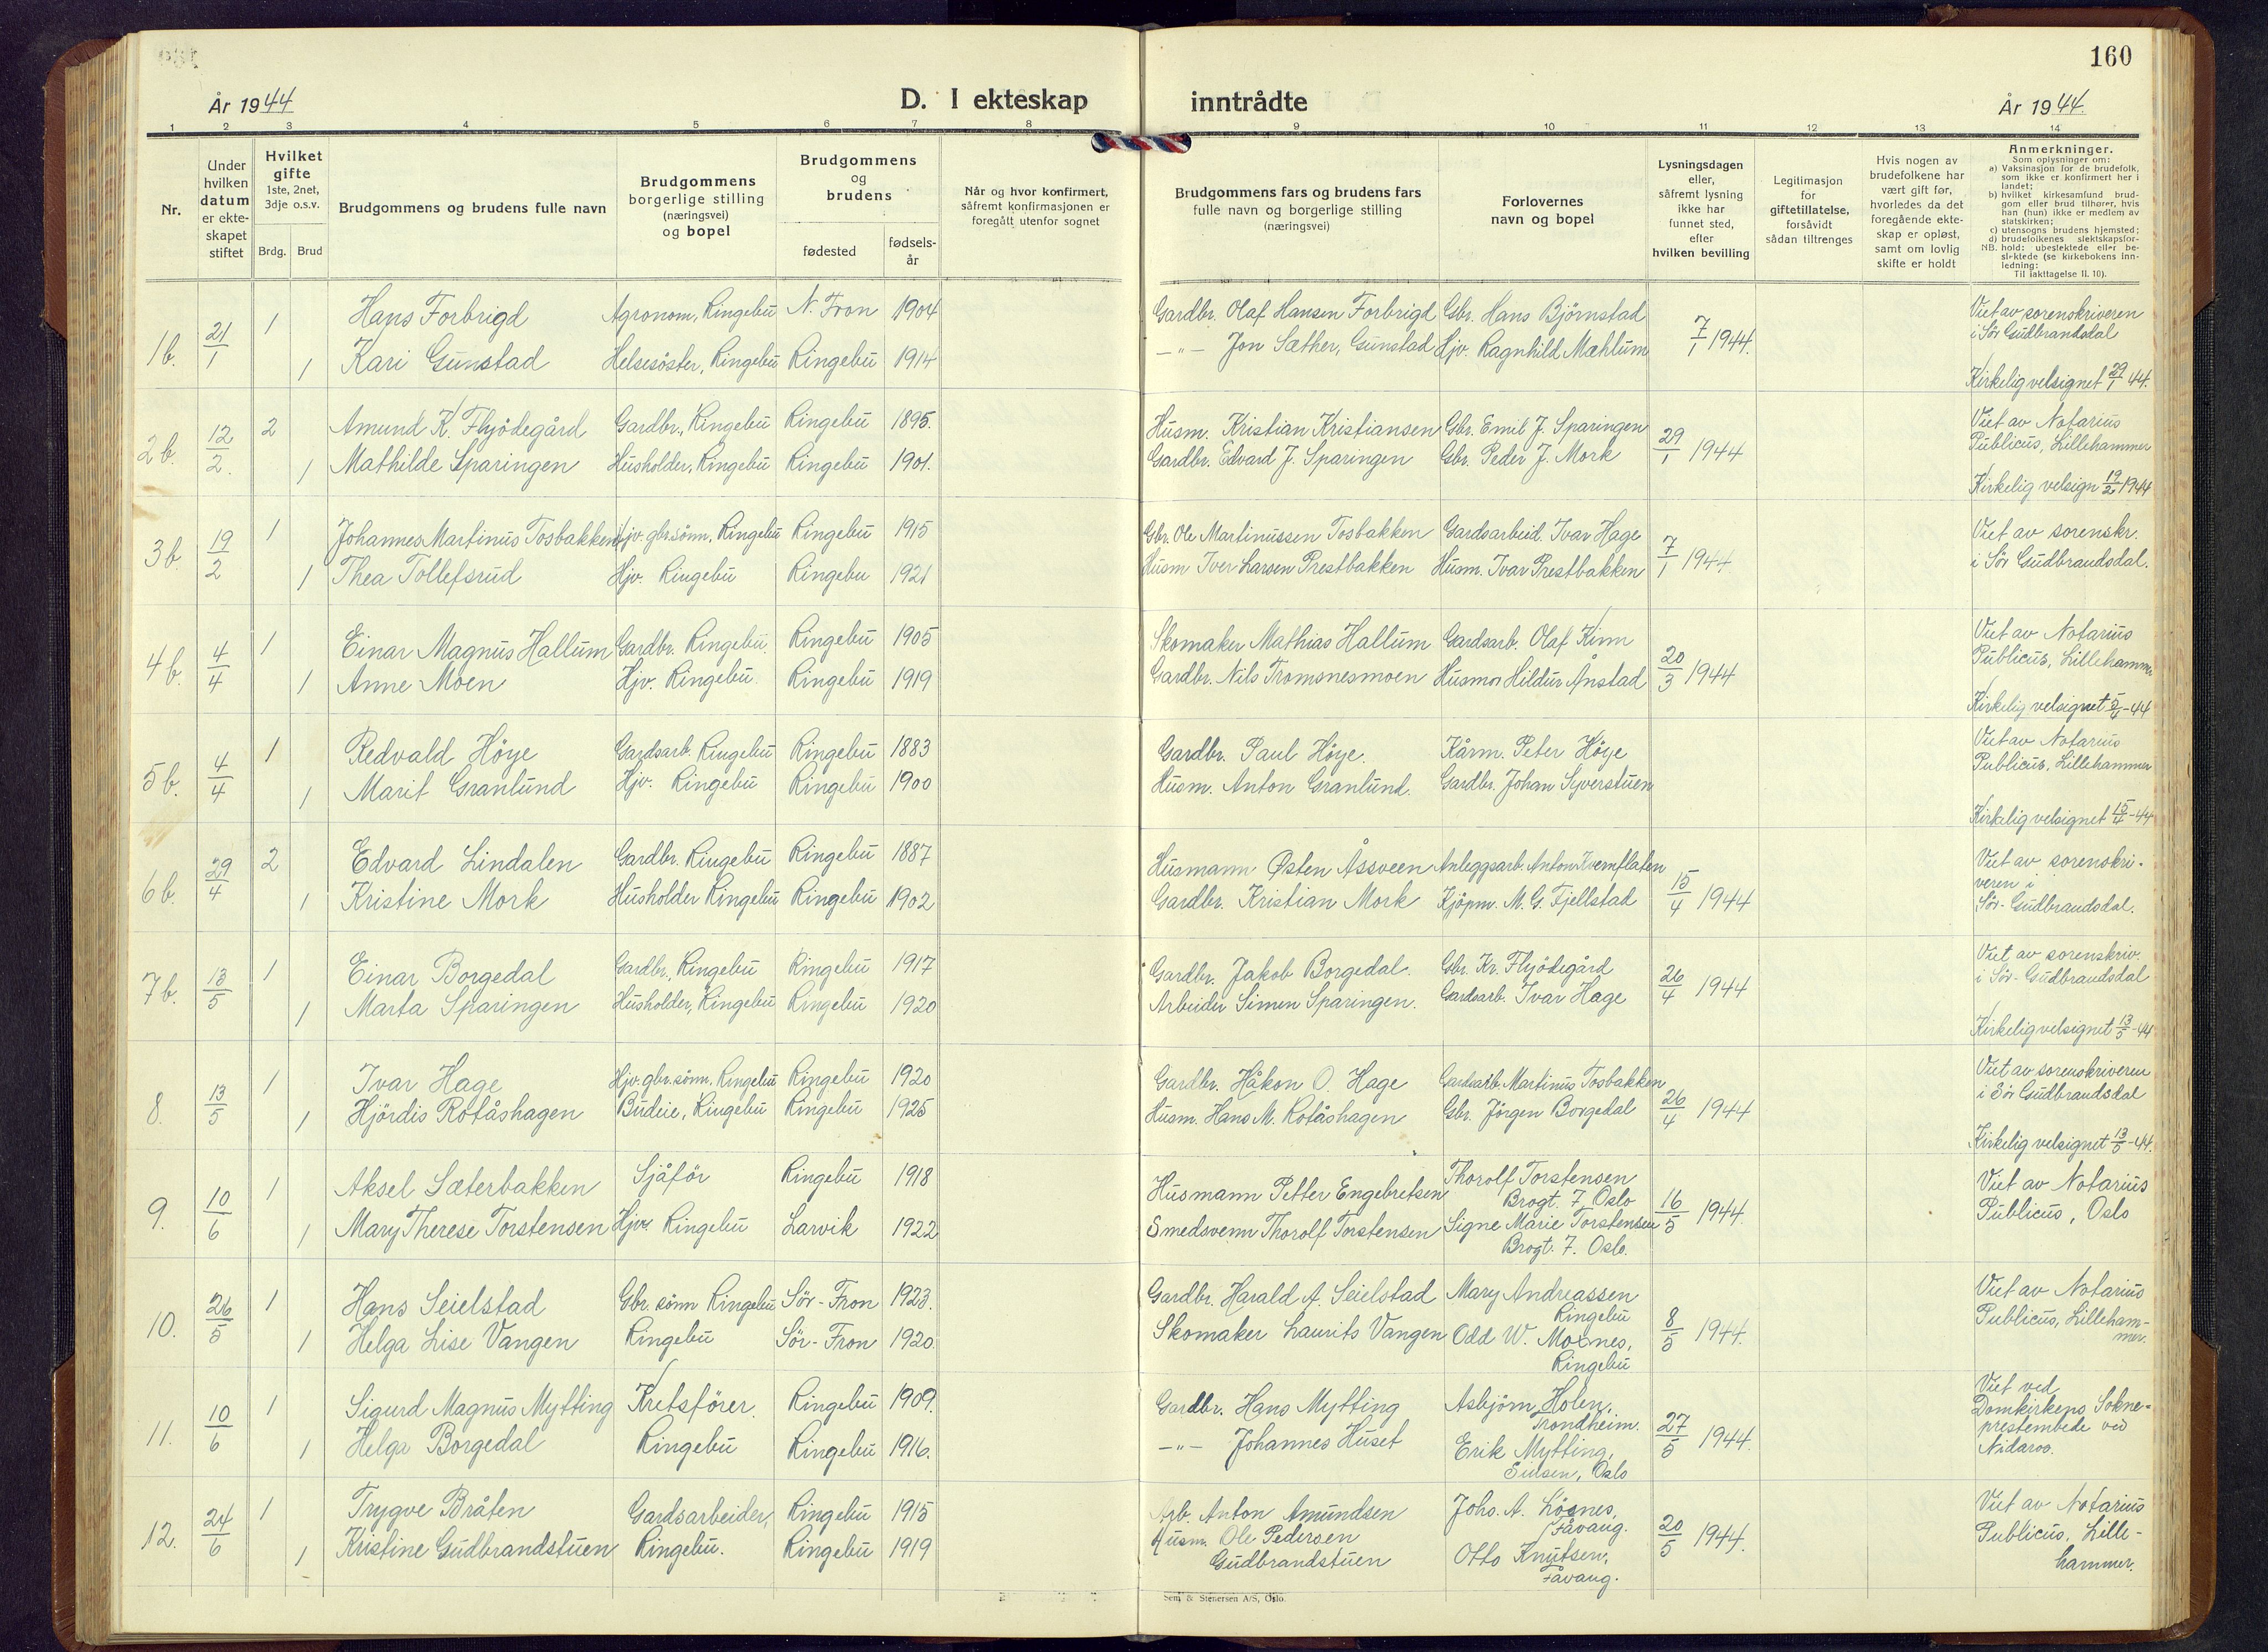 160
År 1944
D. I ekteskap inntrådte
År 1944.
1 2 3 4 5 6 7 8 9 10 11 12 13 14
Nr.
Under
hvilken
datum
er ekte-
skapet
stiftet
Hvilket
gifte
1ste, 2net,
3dje o.s.v.
Brdg. Brud
Brudgommens og brudens fulle navn
Brudgommens
borgerlige stilling
(næringsvei)
og bopel
Brudgommens
og
brudens
fødested
fødsels-
år
Når og hvor konfirmert,
såfremt konfirmasjonen er
foregått utenfor sognet
Brudgommens fars og brudens fars
fulle navn og borgerlige stilling
(næringsvei)
Forlovernes
navn og bopel
Lysningsdagen
eller,
såfremt lysning
ikke har
funnet sted,
efter
hvilken bevilling
Legitimasjon
for
giftetillatelse,
forsåvidt
sådan tiltrenges
Hvis nogen av
brudefolkene har
vært gift før,
hvorledes da det
foregående ekte-
skap er opløst,
samt om lovlig
skifte er holdt
Anmerkninger.
Som oplysninger om:
a) Vaksinasjon for de brudefolk,
som ikke er konfirmert her i
landet;
b) hvilket kirkesamfund brud-
gom eller brud tilhører, hvis
han (hun) ikke er medlem av
statskirken;
c) utensogns brudens hjemsted;
d) brudefolkenes slektskapsfor-
NB. hold: ubeslektede eller be-
slektede (se kirkebokens Inn-
ledning:
Til iakttagelse II. 10).
1b. 21/1 1 Hans Forbrigd Agronom, Ringebu N. Fron 1904 Gardbr. Olaf Hansen Forbrigd Gbr. Hans Bjørnstad 7/1 1944. Viet av sorenskriveren
i Sör Gudbrandsdal
1 Kari Gunstad Helsesöster, Ringebu Ringebu 1914 -"- Jon Sæther, Gunstad Hjv. Ragnhild Mæhlum
Kirkelig velsignet 29/1 44.
2b. 12/2. 2 Amund K. Flyödegård Gardbr., Ringebu Ringebu 1895. Husm. Kristian Kristiansen Gbr. Emil J. Sparingen 29/1 1944 Viet av Notarius
Publicus, Lillehammer
1 Mathilde Sparingen Husholder, Ringebu Ringebu 1901. Gardbr. Edvard J. Sparingen Gbr. Peder J. Mork
Kirkelig velsign 19/2 1944
3b. 19/2 1 Johannes Martinus Tosbakken Hjv. gbr. sönn, Ringebu Ringebu 1915 Gbr. Ole Martinussen Tosbakken Gardsarbeid. Ivar Hage 7/1 1944. Viet av sorenskr.
1 Thea Tollefsrud Hjv. Ringebu Ringebu 1921 Husm Iver Larsen Prestbakken Husm. Ivar Prestbakken i Sör Gudbrandsdal.
4b. 4/4 1 Einar Magnus Hallum Gardbr. Ringebu. Ringebu 1905 Skomaker Mathias Hallum Gardsarb. Olaf Kinn 20/3 1944 Viet av Notarius
Publicus, Lillehamm
1 Anne Moen Hjv. Ringebu. Ringebu 1919 Gardbr. Nils Tromsnesmoen Husmor Hildur Ånstad
Kirkelig velsignet 5/4-44
5b. 4/4 1 Redvald Höye Gardsarb. Ringebu Ringebu 1883 Gardbr. Paul Höye. Kårm. Peter Höye Viet av Notarius
Publicus, Lillehammer
1 Marit Granlund Hjv. Ringebu Ringebu 1900 Husm. Anton Granlund. Gardbr. Johan Syverstuen
Kirkelig velsignet 15/4-44
6b. 29/4 2 Edvard Lindalen Gardbr. Ringebu Ringebu 1887 Husmann Østen Åssveen Anleggsarb. Anton Kvernflaten 15/4 1944 Viet av sorenskri-
veren i
1 Kristine Mork Husholder Ringebu Ringebu 1902 Gardbr. Kristian Mork Kjöpm. M. G. Fjellstad Sör-Gudbrandsdal.
7b. 13/5 1 Einar Borgedal Gardbr., Ringebu Ringebu 1917 Gardbr. Jakob Borgedal. Gbr. Kr. Flyödegård 26/4 1944 Viet av sorenskriv.
i Sör-Gudbrandsdal
1 Marta Sparingen Husholder, Ringebu Ringebu 1920 Arbeider Simen Sparingen. Gardsarb. Ivar Hage
Kirkelig velsignet 13/5-44
8. 13/5 1 Ivar Hage Hjv. gbr. sönn, Ringebu Ringebu 1920 Gardbr. Håkon O. Hage Gardsarb. Martinus Tosbakken 26/4 1944 Viet av sorenskriveren
i Sör Gudbrandsdal
1 Hjördis Rotåshagen Budeie, Ringebu Ringebu 1925 Husm. Hans M. Rotåshagen Gbr. Jörgen Borgedal
Kirkelig velsignet 13/5-44.
9. 10/6 1 Aksel Sæterbakken Sjåför Ringebu 1918 Husmann Petter Engebretsen Thorolf Torstensen
Brogt. 7. Oslo 16/5 1944. Viet av Notarius
Publicus, Oslo
1 Mary Therese Torstensen Hjv. Ringebu Larvik 1922 Smedsvenn Thorolf Torstensen Signe Marie Torstensen
Brogt. 7. Oslo.
10. 26/5 1 Hans Seielstad Gbr. sönn Ringebu Sör-Fron 1923. Gardbr. Harald A. Seielstad Mary Andreassen
Ringebu 8/5 1944. Viet av Notarius
Publicus, Lilleham-
mer.
1 Helga Lise Vangen Ringebu Sör-Fron 1920. Skomaker Laurits Vangen Odd W. Moxnes,
Ringebu
11. 10/6 1 Sigurd Magnus Mytting Kretsförer. Ringebu 1909. Gardbr. Hans Mytting Asbjörn Holen,
Trondheim. 27/5 1944. Viet ved
Domkirkens Sokne-
prestembede ved
Nidaros.
1 Helga Borgedal Ringebu Ringebu 1916. -"- Johannes Huset Erik Mytting,
Sinsen, Oslo
12. 24/6 1 Trygve Bråten Gardsarbeider, Ringebu 1915 Arb. Anton Amundsen Johs. A. Lösnes,
Fåvang. 20/5 1944. Viet av Notarius
Publicus, Lille-
hammer.
1 Kristine Gudbrandstuen Ringebu. Ringebu 1919 Husm. Ole Pedersen
Gudbrandstuen Otto Knutsen,
Fåvang.
Sem & Stenersen A/S, Oslo.